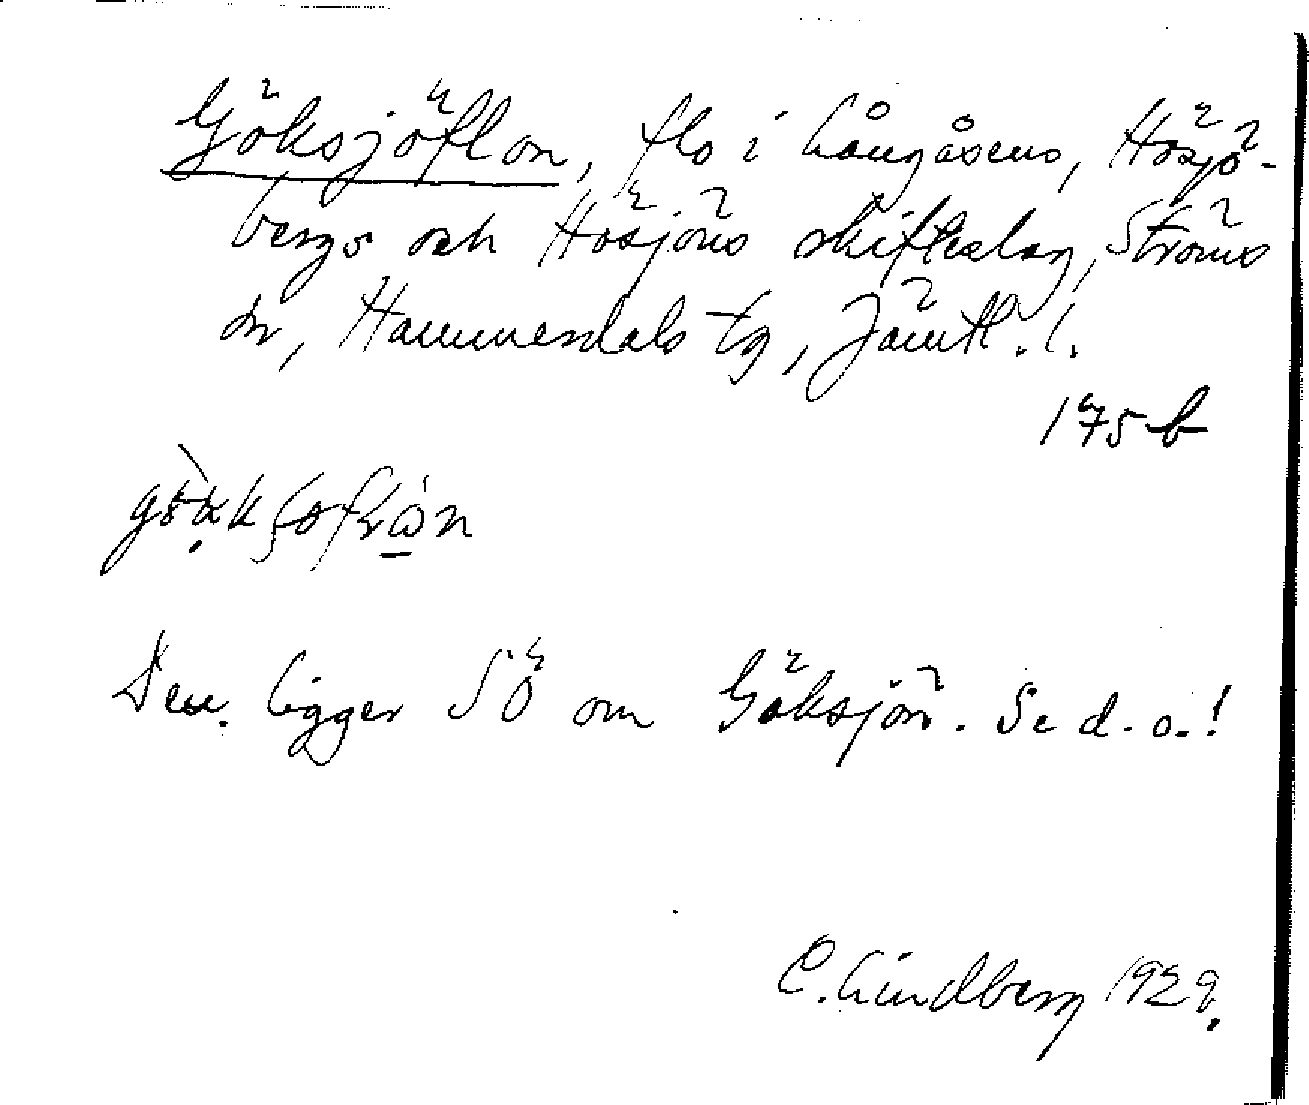 Göksjöflon, flo i Långåsens, Hösjö-
bergs och Hösjöns skifteslag, Ströms
sn, Hammerdals tg, Jämtl. l.
175 b
Den ligger SÖ om Göksjön. Se d. o.!
C. Lindberg 1929.